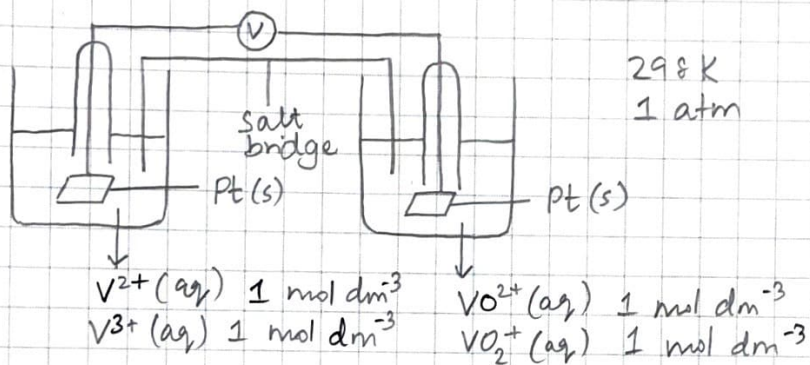 V
298 K
1 atm
salt
bridge
Pt (s)
Pt (s)
V²⁺ (aq) 1 mol dm⁻³
V³⁺ (aq) 1 mol dm⁻³
VO²⁺ (aq) 1 mol dm⁻³
VO₂⁺ (aq) 1 mol dm⁻³